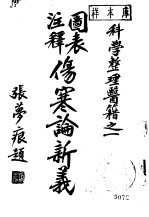 樣本庫
科學整理醫籍之一
圖表
註釋
傷寒論新義
張夢痕題